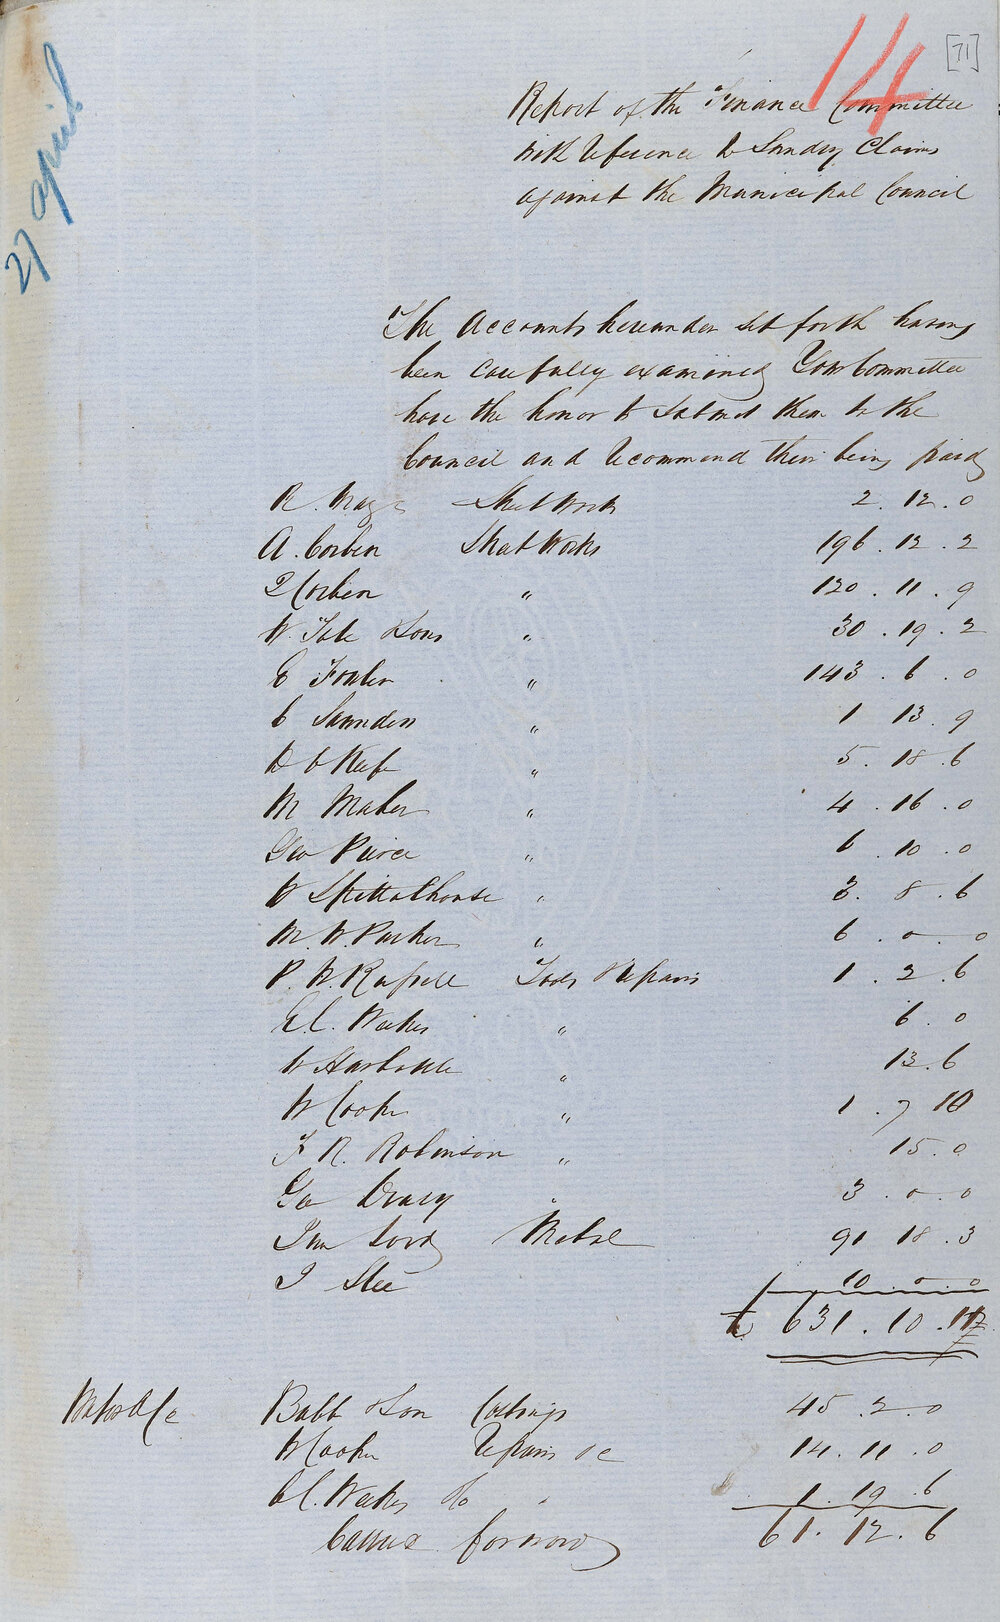 [71]
14
27 april
Report of the Finance Committee
with reference to Sundry Claims
against the Municipal Council
The Accounts hereunder set forth having
been carefully examined Your Committee
have the honor to submit them to the
Council and recommend their being paid
R. Street Work 2.12.0
A. Corben Street Works 196.12.2
Corben " 120.11.9
W. Tate & Sons " 30.19.2
E Fowler " 143.6.0
C Saunders " 1 13.9
D O Keefe " 5.18.6
M Maher " 4.16.0
Geo Pierce " 6.10.0
W Spittlehouse " 3.8.6
M. W. Parker " 6.0.0
P. N. Russell Tools & Repairs 1.2.6
E C. Weekes " 6.0
W " 13.6
W Cooke " 1.7 10
F R. Robinson " 15.0
Geo Druery " 3.0.0
Lord Metal 91 18.3
J Slee 10.0.0
£ 631.10.11
Water A/c Bubb & Son Castings 45.2.0
W Cooke Repairs &c 14.11.0
E C. Weekes Do " 1.19.6
Carried forward 61.12.6